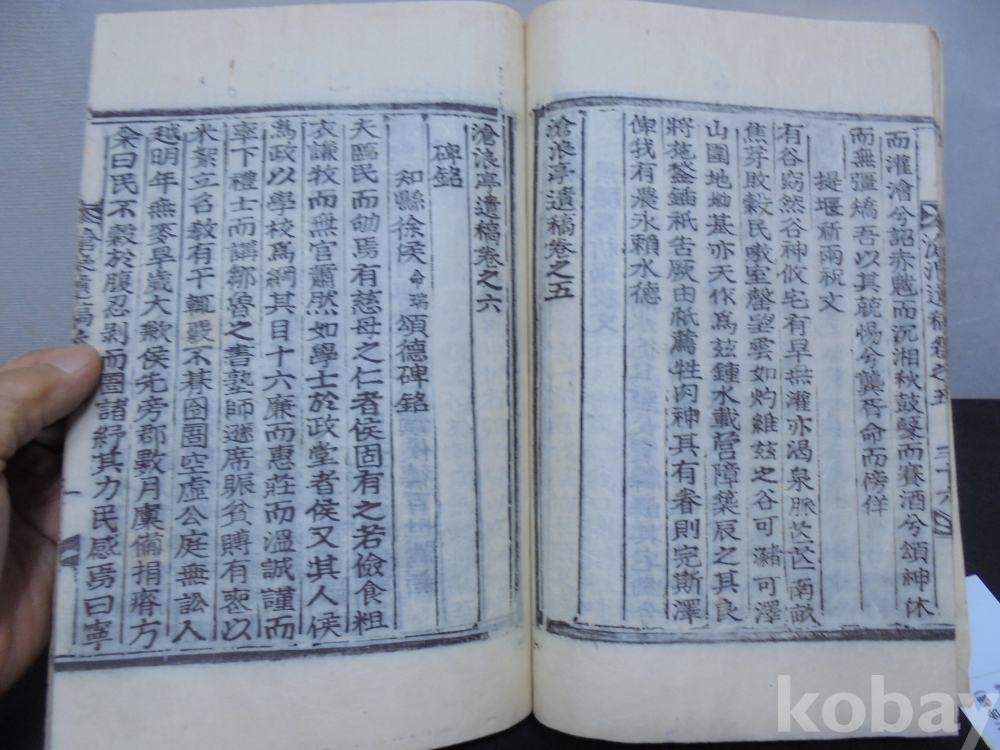 而灌澮兮詔赤魃而沉湘秋鼓鼛而賽酒兮頌神休
而無彊矯吾以其兢惕兮龔胥命而傍佯
提堰祈雨祝文
有谷窈然谷神攸宅有旱無灌亦渴泉脉芒芒南畝
焦芽敗穀民嗷室罄望雲如灼維玆之谷可瀦可澤
山圍地坳基亦天作爲玆鍾水載營障築辰之其良
將施畚鍤祇告厥由祇薦牲肉神其有眷則完斯澤
俾我有農永賴水德
滄浪亭遺稿卷之五
滄浪遺稿卷之五 三十六
滄浪亭遺稿卷之六
碑銘
知縣徐侯命瑞頌德碑銘
夫臨民而劬焉有慈母之仁者侯固有之若儉食粗
衣謙牧而無官肅然如學士於政堂者侯又其人侯
爲政以學校爲綱其目十六廉而惠莊而溫誠謹而
宰下禮士而講鄒魯之書塾師遜席賑貧賻有喪以
米絮立召敎有干輒毀不朞囹圄空虛公庭無訟入
越明年無麥旱歲大歉侯先旁郡數月廩備捐瘠方
籴曰民不穀於腹忍剥而國諸紓其力民感焉曰寧
一
kobay